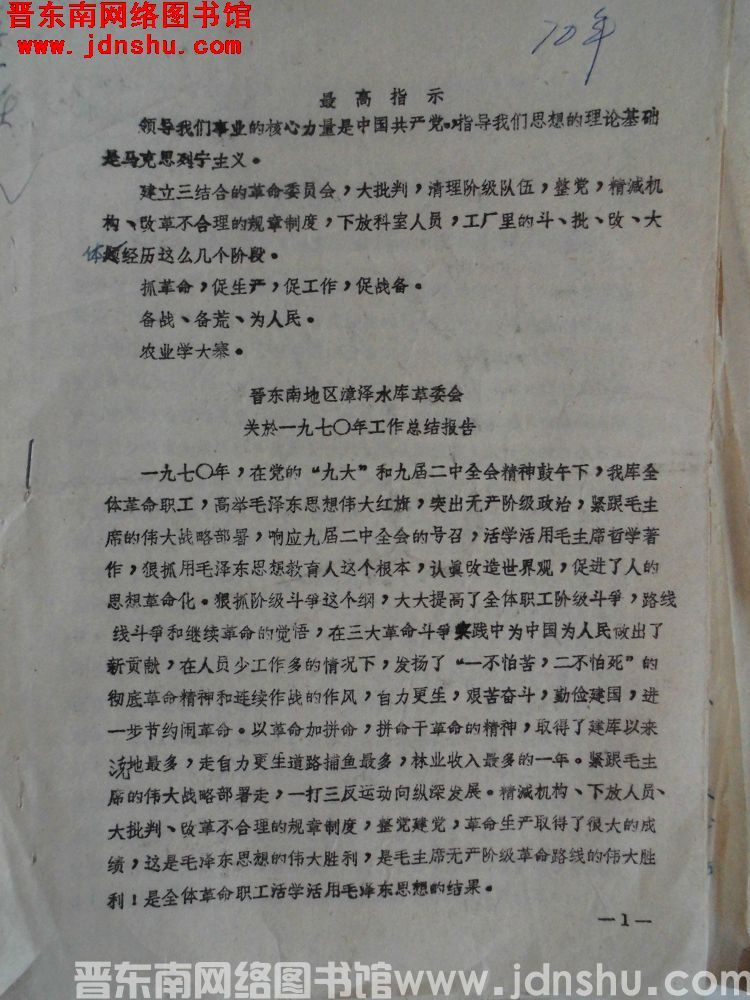 晋东南网络图书馆
www.jdnshu.com
70年
最高指示
领导我们事业的核心力量是中国共产党。指导我们思想的理论基础
是马克思列宁主义。
建立三结合的革命委员会，大批判，清理阶级队伍，整党，精减机
构、改革不合理的规章制度，下放科室人员，工厂里的斗、批、改、大
体经历这么几个阶段。
抓革命，促生产，促工作，促战备。
备战、备荒、为人民。
农业学大寨。
晋东南地区漳泽水库革委会
关於一九七〇年工作总结报告
一九七〇年，在党的“九大”和九届二中全会精神鼓午下，我库全
体革命职工，高举毛泽东思想伟大红旗，突出无产阶级政治，紧跟毛主
席的伟大战略部署，响应九届二中全会的号召，活学活用毛主席哲学著
作，狠抓用毛泽东思想教育人这个根本，认真改造世界观，促进了人的
思想革命化。狠抓阶级斗争这个纲，大大提高了全体职工阶级斗争，路线
线斗争和继续革命的觉悟，在三大革命斗争实践中为中国为人民做出了
新贡献，在人员少工作多的情况下，发扬了“一不怕苦，二不怕死”的
彻底革命精神和连续作战的作风，自力更生，艰苦奋斗，勤俭建国，进
一步节约闹革命。以革命加拼命，拼命干革命的精神，取得了建库以来
浇地最多，走自力更生道路捕鱼最多，林业收入最多的一年。紧跟毛主
席的伟大战略部署走，一打三反运动向纵深发展。精减机构、下放人员、
大批判、改革不合理的规章制度，整党建党，革命生产取得了很大的成
绩，这是毛泽东思想的伟大胜利，是毛主席无产阶级革命路线的伟大胜
利！是全体革命职工活学活用毛泽东思想的结果。
—1—
晋东南网络图书馆www.jdnshu.com